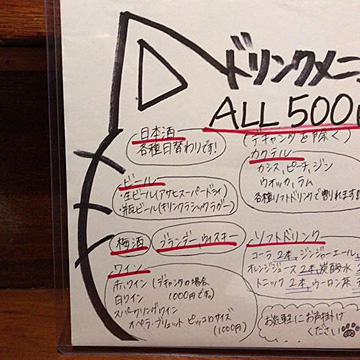 ドリンクメニ
ALL 500
(デキャンタを除く)
日本酒
各種日替わりです!
カクテル
カシス、ピーチ、ジン
ウォッカ、ラム
各種ソフトドリンクで割れます
ビール
・生ビール(アサヒスーパードライ)
・瓶ビール(キリンクラシックラガー)
梅酒
ブランデーウィスキー
ソフトドリンク
コーラ2本、ジンジャーエール
オレンジジュース2本、炭酸水
トニック2本、ウーロン茶
ワイン
赤ワイン
白ワイン
(デキャンタの場合
1000円です。)
スパークリングワイン
オペラ・ブリュット ピッコロサイズ
(1000円)
お気軽にお声掛け
ください